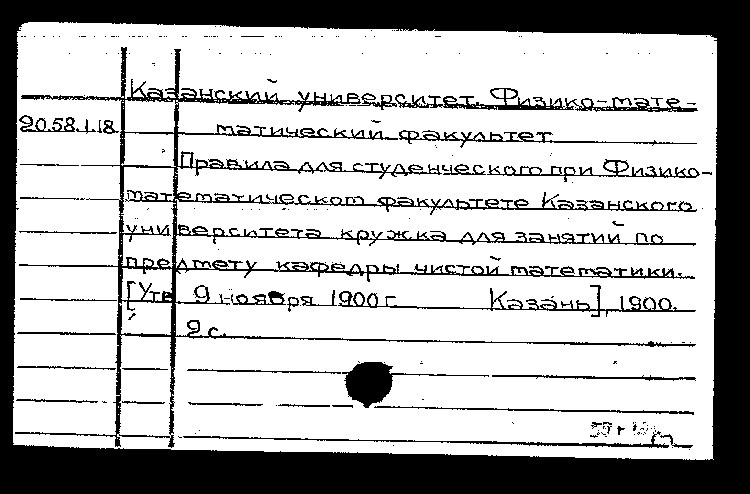 Казанский университет. Физико-мате-
20.58.1.18 матический факультет.
Правила для студенческого при Физико-
математическом факультете Казанского
университета кружка для занятий по
предмету кафедры чистой математики.
[Утв 9 ноября 1900 г. Казань], 1900.
2 с.